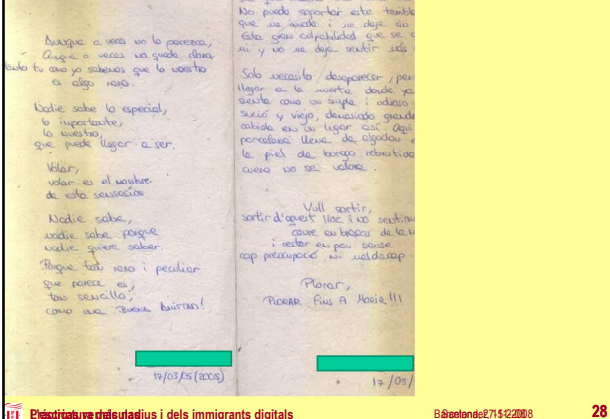 Aunque a veces no lo parezca,
Aunque a veces no quede claro
tanto tu como yo sabemos que lo nuestro
es algo raro.
Nadie sabe lo especial,
lo importante,
lo nuestro,
que puede llegar a ser.
Volar,
volar es el nombre
de esta sensación
Nadie sabe,
nadie sabe porque
nadie quiere saber.
Porque tan raro i peculiar
que parece es,
tan sencillo,
como una BUENA AMISTAD!
17/03/05 (2005)
No puedo soportar este terrible
que me invade i me deja sin
Esta gran culpabilidad que se
mi y no me deja sentir más
Solo necesito desaparecer,
llegar a la muerte donde ya
siento como un simple i odioso
sucio y viejo, demasiado grande
cabida en un lugar así. Aquí
porcelana llena de algodón
la piel de borrego
cuero no se valora.
Vull sortir,
sortir d'aquest lloc i no sentirme
caure en braços de la
i restar en pau sense
cap preocupació ni maldecap.
Plorar,
PLORAR FINS A MORIR!!!
17/03/
i dels immigrants digitals
28